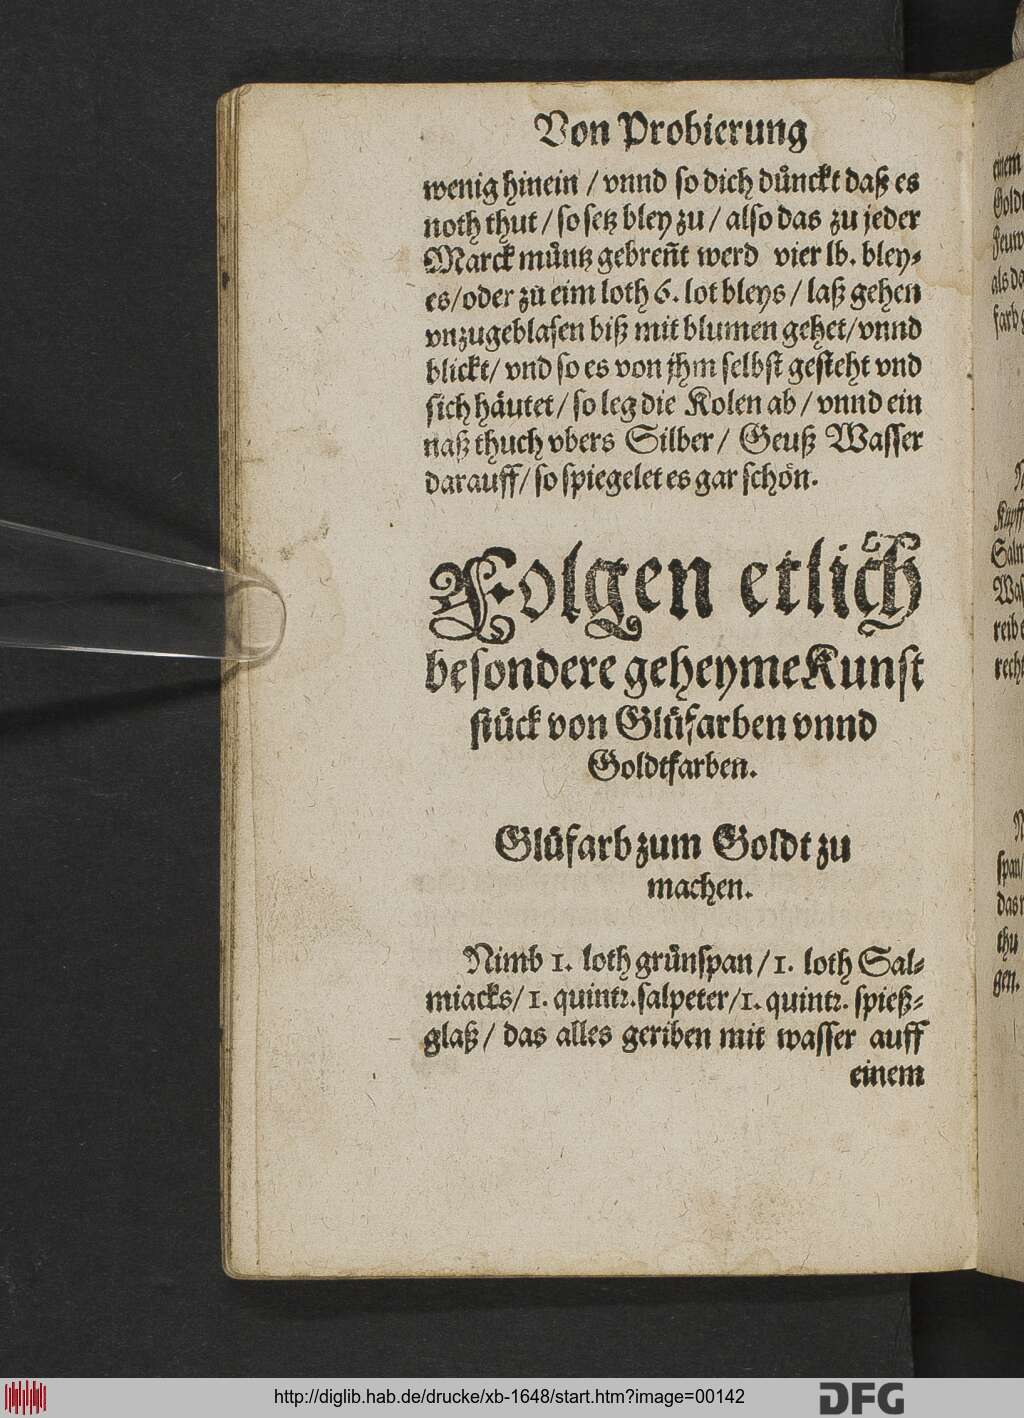 Von Probierung
wenig hinein / vnnd so dich dünckt daß es
noth thut / so setz bley zu / also das zu jeder
Marck müntz gebreñt werd vier lb. bley-
es/oder zů eim loth 6. lot bleys / laß gehen
vnzugeblasen biß mit blumen gehet/vnnd
blickt/ vnd so es von jhm selbst gesteht vnd
sich häutet / so leg die Kolen ab / vnnd ein
naß thuch vbers Silber / Geuß Wasser
darauff / so spiegelet es gar schön.
Folgen etlich
besondere geheyme Kunst
stück von Glüfarben vnnd
Goldtfarben.
Glüfarb zum Goldt zu
machen.
Nimb 1. loth grünspan / 1. loth Sal-
miacks/ 1. quintz. salpeter/1. quintz. spieß-
glaß / das alles geriben mit wasser auff
einem
einem
http://diglib.hab.de/drucke/xb-1648/start.htm?image=00142
DFG